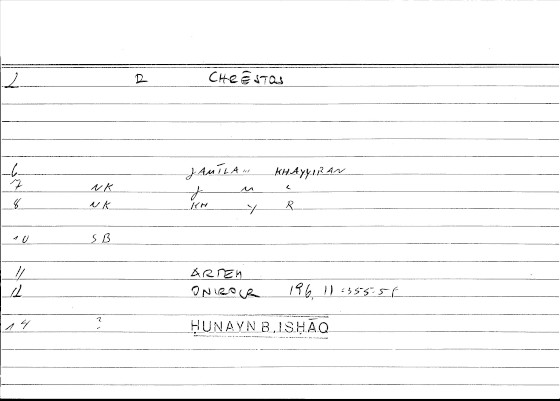 2 D CHRĒSTOS
6 JAMĪLA... KHAYYIRAN
7 NK J M L
8 NK KH Y R
10 SB
11 ARTEM
12 ONIROCR 196, 11
14 ? ḤUNAYN B. ISḤĀQ